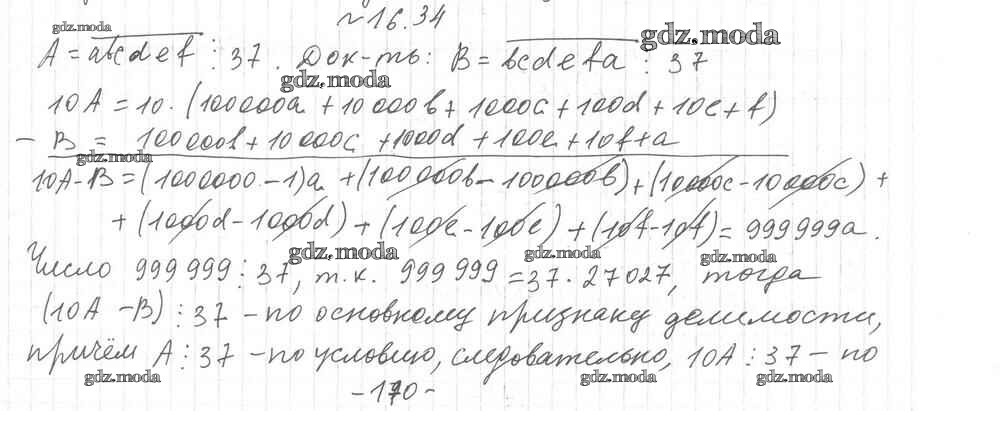 №16.34
gdz.moda
gdz.moda
A = abcdef ⋮ 37. Док-ть: B = bcdefa ⋮ 37
gdz.moda
10A = 10·(100000a + 10000b + 1000c + 100d + 10e + f)
− B = 100000b + 10000c + 1000d + 100e + 10f + a
gdz.moda
10A-B = (1000000 - 1)a + (100000b - 100000b) + (10000c - 10000c) +
+ (1000d - 1000d) + (100e - 100e) + (10f - 10f) = 999999a.
gdz.moda gdz.moda gdz.moda
Число 999999 ⋮ 37, т.к. 999999 = 37·27027, тогда
(10A - B) ⋮ 37 - по основному признаку делимости,
причём A ⋮ 37 - по условию, следовательно, 10A ⋮ 37 - по
gdz.moda gdz.moda gdz.moda
-170-